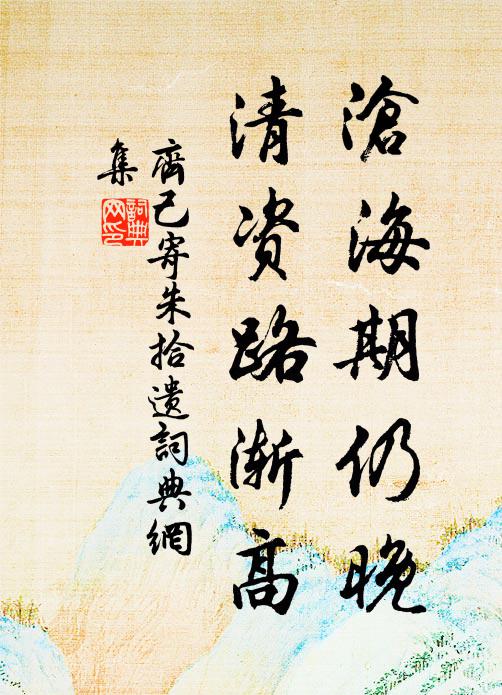 滄海期仍晚
清资路渐高
齊己寄朱拾遺詞典網
集
詞典
网印